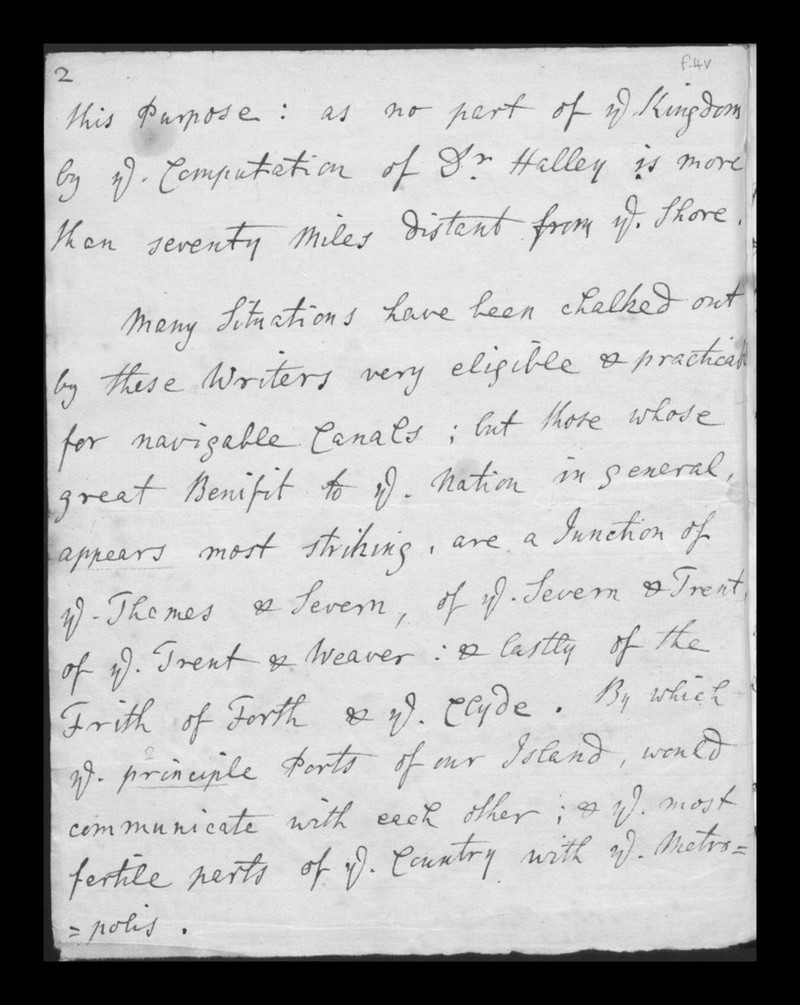 2
f.4v
this Purpose : as no part of yͤ Kingdom
by yͤ. Computation of Dr. Halley is more
than seventy Miles distant from yͤ. Shore.
Many Situations have been chalked out
by these Writers very eligible & practicabl
for navigable Canals ; but those whose
great Benifit to yͤ. Nation in general,
appears most striking, are a Junction of
yͤ. Thames & Severn, of yͤ. Severn & Trent,
of yͤ. Trent & Weaver : & lastly of the
Frith of Forth & yͤ. Clyde . By which
yͤ. principle Ports of our Island, would
communicate with each other ; & yͤ. most
fertile parts of yͤ. Country with yͤ. Metro=
=polis .